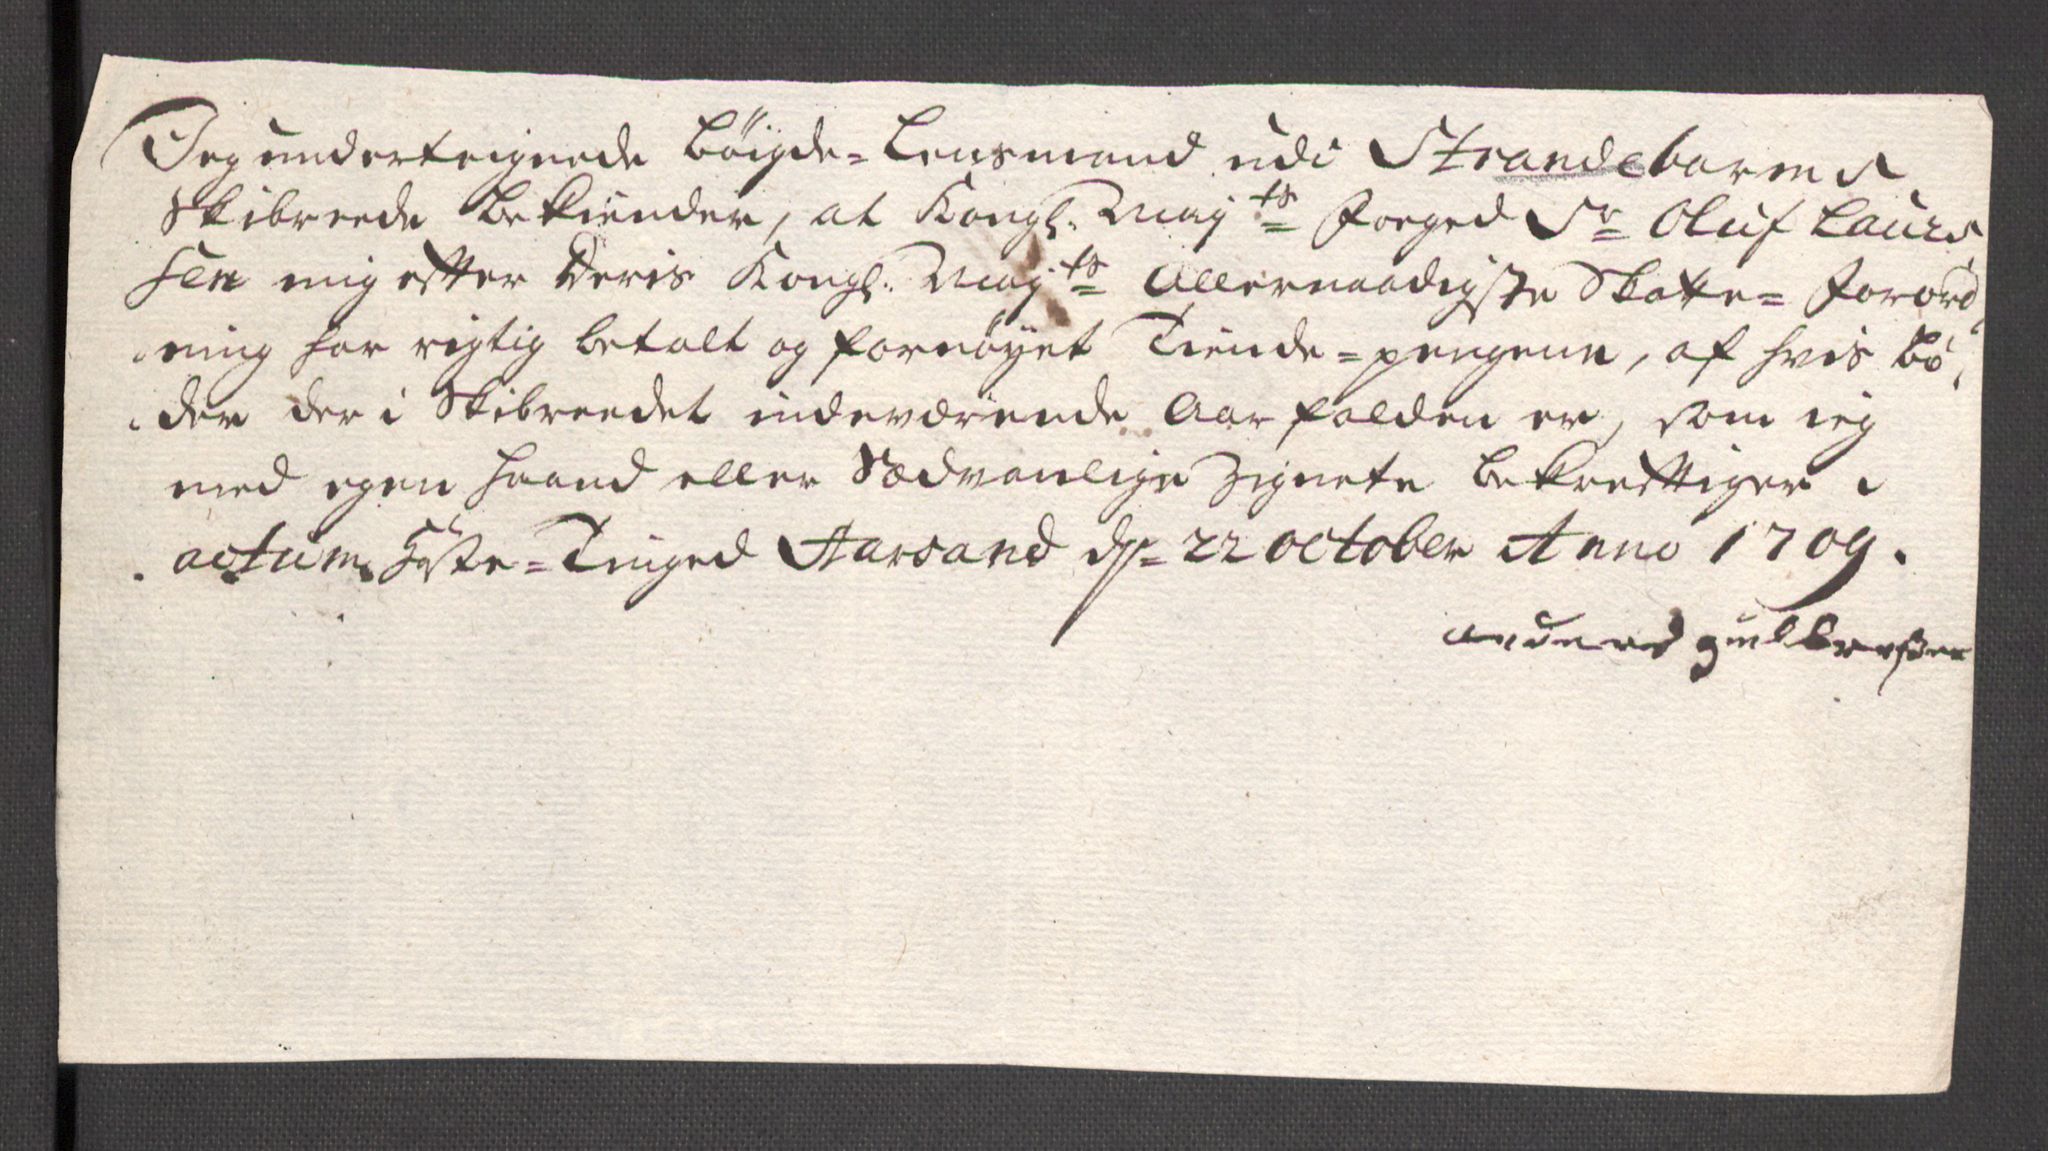 Jeg underteignede bôigde=Lensmand udi Strandebarms
Skibreede bekiender, at Kongl: Mayts Foeged Sr Oluf Laurs
sen mig efter Deris Kongl: Mayts Allernaadigste Skatte=Forord
ning har rigtig betalt og fornôyet Tiende=pengene, af hvis bô
der der i Skibreedet indeværende Aar falden er, som ieg
med egen haand eller Sædvanlige Zignete bekreftiger
actum Höste=Tinged Aarsand ds 22 October Anno 1709.
anders gulbrefsen